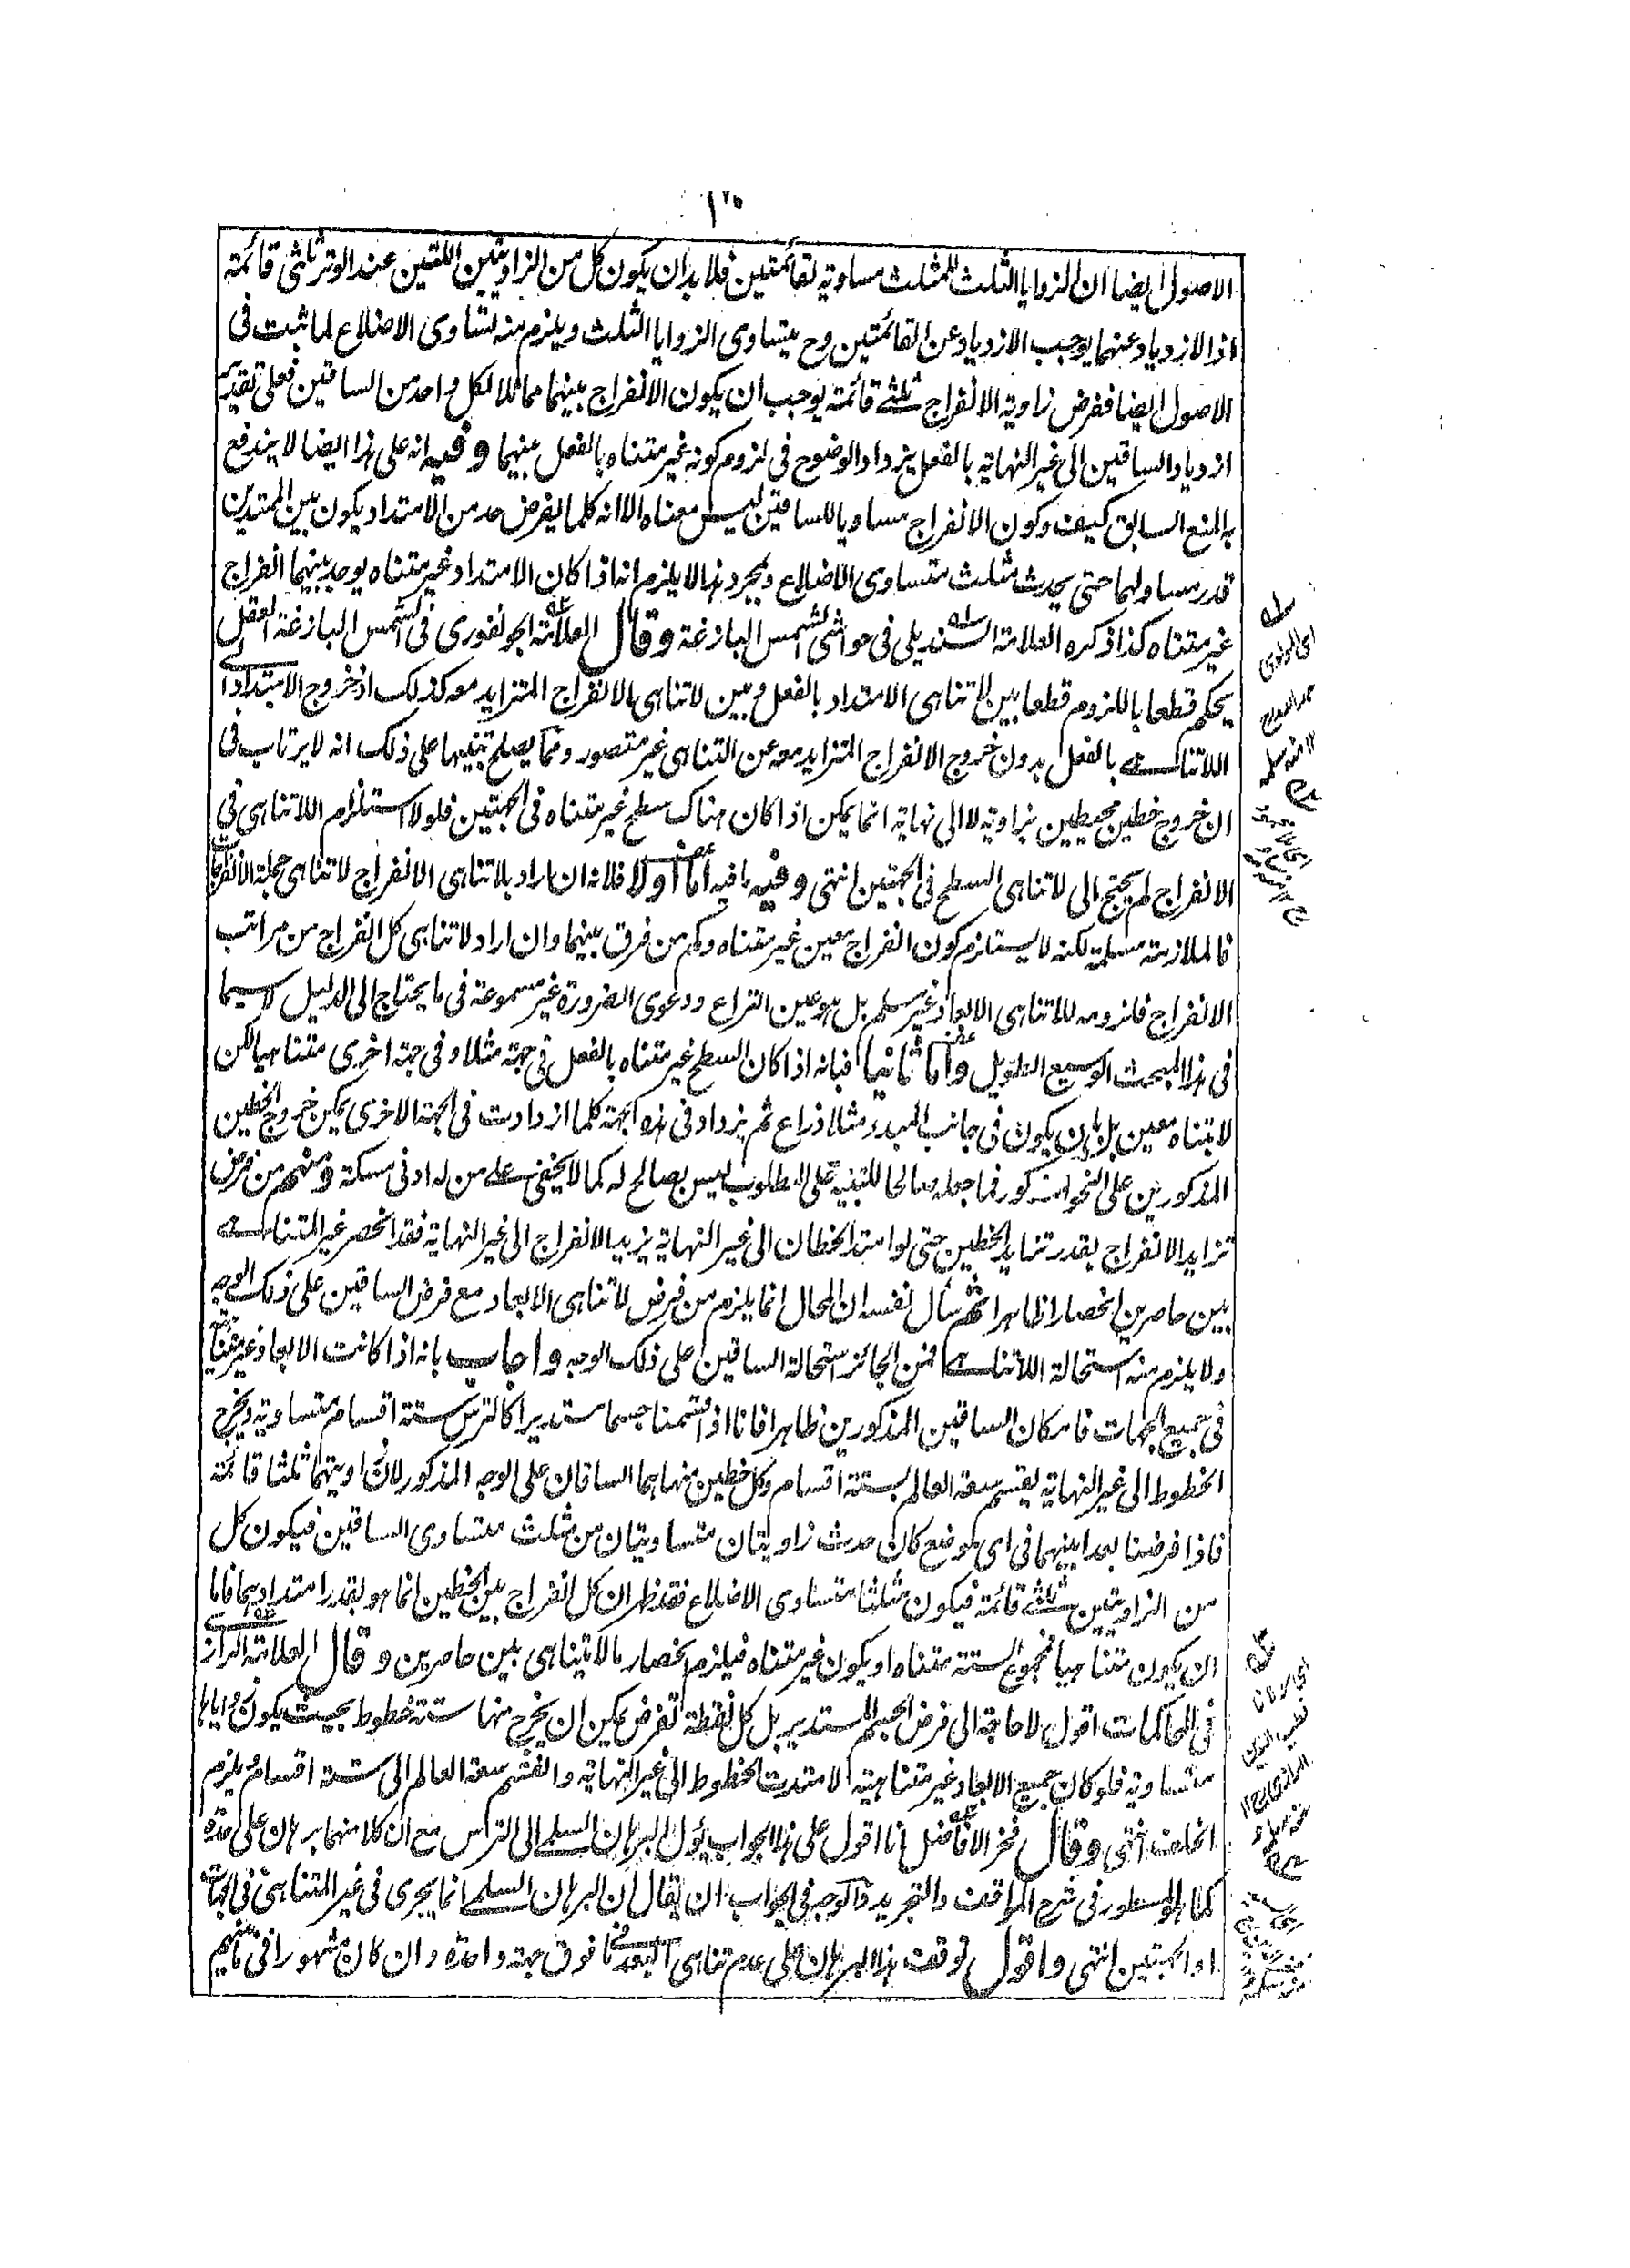 الاصول ايضا ان الزوايا الثلث للمثلث مساوية لقائمتين فلا بد ان يكون كل من الزاويتين اللتين عند الوتر ثلثى قائمة
اذ الازدياد عنهما يوجب الازدياد عن القائمتين وح يتساوى الزوايا الثلث ويلزم منه تساوى الاضلاع لما ثبت فى
الاصول ايضا ففرض زاوية الانفراج ثلثے قائمة يوجب ان يكون الانفراج بينهما مماثلا لكل واحد من الساقين فعلى تقدير
ازدياد الساقين الى غير النهاية بالفعل يزداد الوضوح فى لزوم كونه غير متناه بالفعل بينهما وفيه انه على هذا ايضا لا يندفع
به المنع السابق كيف وكون الانفراج مساويا للساقين ليس معناه الا انه كلما يفرض حد من الامتداد يكون بين الممتدين
قدر مساو لهما حتى يحدث مثلث متساوى الاضلاع ومجرد هذا لا يلزم انه اذا كان الامتداد غير متناه يوجد بينهما انفراج
غير متناه كذا ذكره العلامة السنديلى فى حواشى الشمس البازغة وقال العلامة الجونفورى فى الشمس البازغة العقل
يحكم قطعا باللزوم قطعا بين لا تناهى الامتداد بالفعل وبين لا تناهى الانفراج المتزايد معه كذلك اذ خروج الامتداد الى
اللاتناهے بالفعل بدون خروج الانفراج المتزايد معه عن التناهى غير متصور ومما يصلح تنبيها على ذلك انه لا يرتاب فى
ان خروج خطين محيطين بزاوية لا الى نهاية انما يمكن اذا كان هناك سطح غير متناه فى الجهتين فلولا استلزام اللاتناهى فى
الانفراج لم يحتج الى لا تناهى السطح فى الجهتين انتهى وفيه ما فيه اما اولا فلانه ان اراد بلا تناهى الانفراج لا تناهى جملة الانفراجات
فالملازمة مسلمة لكنه لا يستلزم كون انفراج معين غير متناه وكم من فرق بينهما وان اراد لا تناهى كل انفراج من مراتب
الانفراج فلزومه للاتناهى الابعاد غير مسلم بل هو عين النزاع ودعوى الضرورة غير مسموعة فى ما يحتاج الى الدليل لا سيما
فى هذا المبحث الوسيع الطويل واما ثانيا فبانه اذا كان السطح غير متناه بالفعل فى جهة مثلا وفى جهة اخرى متناهيا لكن
لا بتناه معين بل بان يكون فى جانب المبدء مثلا ذراع ثم يزداد فى هذه الجهة كلما ازدادت فى الجهة الاخرى يمكن خروج الخطين
المذكورين على النحو المذكور فما جعله صالحا للتنبيه على المطلوب ليس بصالح له كما لا يخفى على من له ادنى مسكة ومنهم من فرض
تزايد الانفراج بقدر تزايد الخطين حتى لو امتد الخطان الى غير النهاية يزيد الانفراج الى غير النهاية فقد انحصر غير المتناهے
بين حاصرين انحصارا ظاهرا ثم سأل نفسه ان المحال انما يلزم من فرض لا تناهى الابعاد مع فرض الساقين على ذلك الوجه
ولا يلزم منه استحالة اللاتناهے فمن الجائز استحالة الساقين على ذلك الوجه واجاب بانه اذا كانت الابعاد غير متناهية
فى جميع الجهات فامكان الساقين المذكورين ظاهر فانا اذا قسمنا جسما مستديرا كالترس ستة اقسام متساوية ونخرج
الخطوط الى غير النهاية يقسم سعة العالم بستة اقسام وكل خطين منها هما الساقان على الوجه المذكور لان زاويتهما ثلثا قائمة
فاذا فرضنا بعدا بينهما فى اى موضع كان حدث زاويتان متساويتان من مثلث متساوى الساقين فيكون كل
من الزاويتين ثلثے قائمة فيكون مثلثا متساوى الاضلاع فقد ظهر ان كل انفراج بين الخطين انما هو بقدر امتدادهما فاما
ان يكون متناهيا فمجموع الستة متناه او يكون غير متناه فيلزم انحصار ما لا يتناهى بين حاصرين وقال العلامة الرازے
فى المحاكمات اقول لا حاجة الى فرض الجسم المستدير بل كل نقطة تفرض يمكن ان يخرج منها ستة خطوط بحيث يكون زواياها
متساوية فلو كان جميع الابعاد غير متناهية لامتدت الخطوط الى غير النهاية وانقسم سعة العالم الى ستة اقسام ويلزم
الخلف انتهى وقال فخر الافاضل انا اقول على هذا الجواب يؤل البرهان السلمے الى الترس مع ان كلا منهما برهان على حدة
كما هو المسطور فى شرح المواقف والتجريد فالوجه فى الجواب ان يقال ان البرهان السلمے انما يجرى فى غير المتناهى فى الجهات
او الجهتين انتهى واقول توقف هذا البرهان على عدم تناهى البعد فى ما فوق جهة واحدة وان كان مشهورا فى ما بينهم